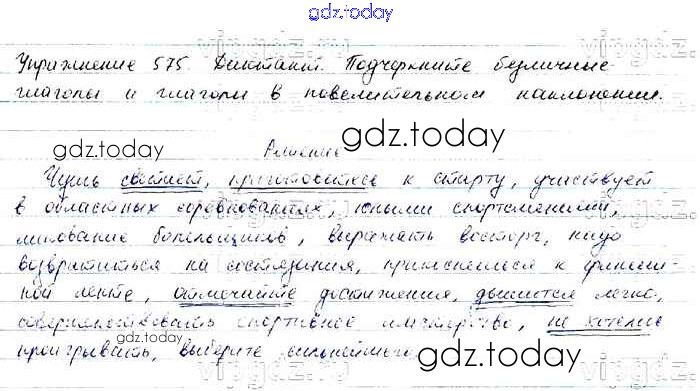 gdz.today
Упражнение 575. Диктант. Подчеркните безличные
глаголы и глаголы в повелительном наклонении.
gdz.today
gdz.today
Решение
Цель состоит, приготовиться к старту, участвует
в областных соревнованиях, юными спортсменами,
ликование болельщиков, выражать восторг, надо
возвратиться на состязания, прикоснемся к финиш-
ной ленте, отмечайте достижения, дышится легко,
совершенствовать спортивное мастерство, не хотелось
проигрывать, выберите сильнейшего
gdz.today